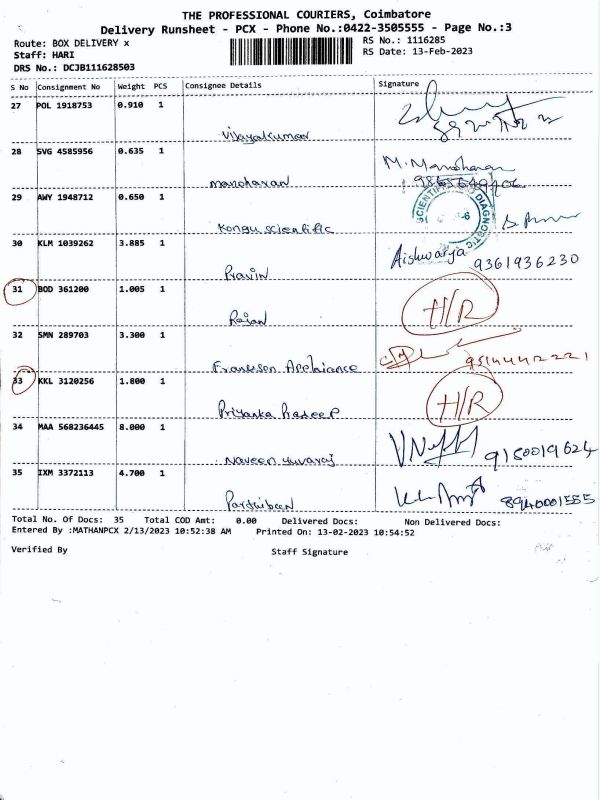 THE PROFESSIONAL COURIERS, Coimbatore
Delivery Runsheet - PCX - Phone No.:0422-3505555 - Page No.:3
Route: BOX DELIVERY x
RS No.: 1116285
Staff: HARI
RS Date: 13-Feb-2023
DRS No.: DCJB111628503
S No Consignment No Weight PCS Consignee Details Signature
27 POL 1918753 0.910 1
Vijayakumar
28 SVG 4585956 0.635 1 M. Manoharan
manoharan
29 AWY 1948712 0.650 1 SCIENTIFIC DIAGNOSTIC
Kongu scientific
30 KLM 1039262 3.885 1 Aishwarya 9361936230
Pravin
31 BOD 361200 1.005 1 H/R
Rajan
32 SMN 289703 3.300 1 9514442221
33 KKL 3120256 1.800 1 H/R
Priyanka Pradeep
34 MAA 568236445 8.000 1 9150019624
Naveen yuvaraj
35 IXM 3372113 4.700 1 8940001555
Total No. Of Docs: 35 Total COD Amt: 0.00 Delivered Docs: Non Delivered Docs:
Entered By :MATHANPCX 2/13/2023 10:52:38 AM Printed On: 13-02-2023 10:54:52
Verified By Staff Signature